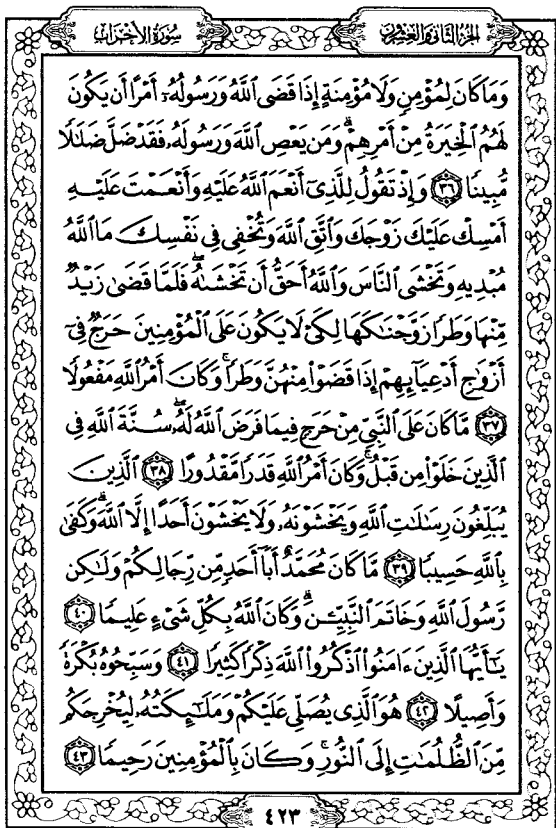 سُورَةُ الأَحْزَابِ
الجُزْءُ الثَّانِي وَالعِشْرُونَ
وَمَا كَانَ لِمُؤْمِنٍ وَلَا مُؤْمِنَةٍ إِذَا قَضَى ٱللَّهُ وَرَسُولُهُۥٓ أَمْرًا أَن يَكُونَ
لَهُمُ ٱلْخِيَرَةُ مِنْ أَمْرِهِمْ ۗ وَمَن يَعْصِ ٱللَّهَ وَرَسُولَهُۥ فَقَدْ ضَلَّ ضَلَٰلًا
مُّبِينًا ٣٦ وَإِذْ تَقُولُ لِلَّذِىٓ أَنْعَمَ ٱللَّهُ عَلَيْهِ وَأَنْعَمْتَ عَلَيْهِ
أَمْسِكْ عَلَيْكَ زَوْجَكَ وَٱتَّقِ ٱللَّهَ وَتُخْفِى فِى نَفْسِكَ مَا ٱللَّهُ
مُبْدِيهِ وَتَخْشَى ٱلنَّاسَ وَٱللَّهُ أَحَقُّ أَن تَخْشَىٰهُ ۖ فَلَمَّا قَضَىٰ زَيْدٌ
مِّنْهَا وَطَرًا زَوَّجْنَٰكَهَا لِكَىْ لَا يَكُونَ عَلَى ٱلْمُؤْمِنِينَ حَرَجٌ فِىٓ
أَزْوَٰجِ أَدْعِيَآئِهِمْ إِذَا قَضَوْا۟ مِنْهُنَّ وَطَرًا ۚ وَكَانَ أَمْرُ ٱللَّهِ مَفْعُولًا
٣٧ مَّا كَانَ عَلَى ٱلنَّبِىِّ مِنْ حَرَجٍ فِيمَا فَرَضَ ٱللَّهُ لَهُۥ ۖ سُنَّةَ ٱللَّهِ فِى
ٱلَّذِينَ خَلَوْا۟ مِن قَبْلُ ۚ وَكَانَ أَمْرُ ٱللَّهِ قَدَرًا مَّقْدُورًا ٣٨ ٱلَّذِينَ
يُبَلِّغُونَ رِسَٰلَٰتِ ٱللَّهِ وَيَخْشَوْنَهُۥ وَلَا يَخْشَوْنَ أَحَدًا إِلَّا ٱللَّهَ ۗ وَكَفَىٰ
بِٱللَّهِ حَسِيبًا ٣٩ مَّا كَانَ مُحَمَّدٌ أَبَآ أَحَدٍ مِّن رِّجَالِكُمْ وَلَٰكِن
رَّسُولَ ٱللَّهِ وَخَاتَمَ ٱلنَّبِيِّـۧنَ ۗ وَكَانَ ٱللَّهُ بِكُلِّ شَىْءٍ عَلِيمًا ٤٠
يَٰٓأَيُّهَا ٱلَّذِينَ ءَامَنُوا۟ ٱذْكُرُوا۟ ٱللَّهَ ذِكْرًا كَثِيرًا ٤١ وَسَبِّحُوهُ بُكْرَةً
وَأَصِيلًا ٤٢ هُوَ ٱلَّذِى يُصَلِّى عَلَيْكُمْ وَمَلَٰٓئِكَتُهُۥ لِيُخْرِجَكُم
مِّنَ ٱلظُّلُمَٰتِ إِلَى ٱلنُّورِ ۚ وَكَانَ بِٱلْمُؤْمِنِينَ رَحِيمًا ٤٣
٤٢٣